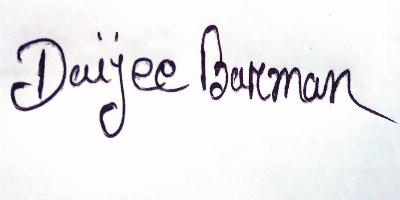 Daijee Barman